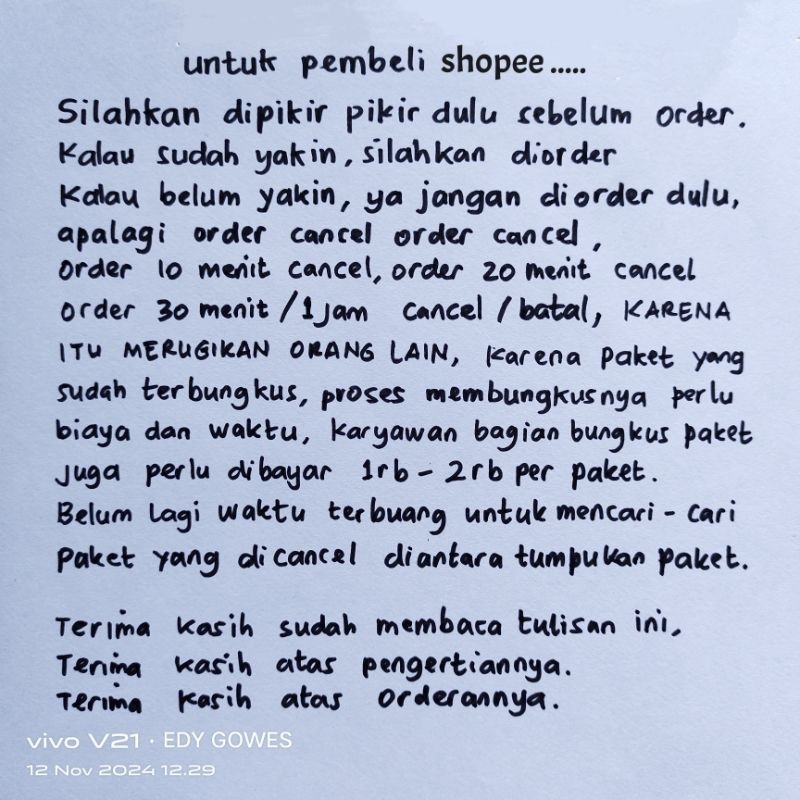 untuk pembeli shopee.....
Silahkan dipikir pikir dulu sebelum order.
Kalau sudah yakin, silahkan diorder
Kalau belum yakin, ya jangan diorder dulu,
apalagi order cancel order cancel,
order 10 menit cancel, order 20 menit cancel
order 30 menit / 1 jam cancel / batal, KARENA
ITU MERUGIKAN ORANG LAIN, karena paket yang
sudah terbungkus, proses membungkusnya perlu
biaya dan waktu, karyawan bagian bungkus paket
juga perlu dibayar 1rb - 2rb per paket.
Belum lagi waktu terbuang untuk mencari - cari
Paket yang dicancel diantara tumpukan paket.
Terima kasih sudah membaca tulisan ini,
Terima kasih atas pengertiannya.
Terima kasih atas orderannya.
vivo V21 · EDY GOWES
12 Nov 2024 12.29